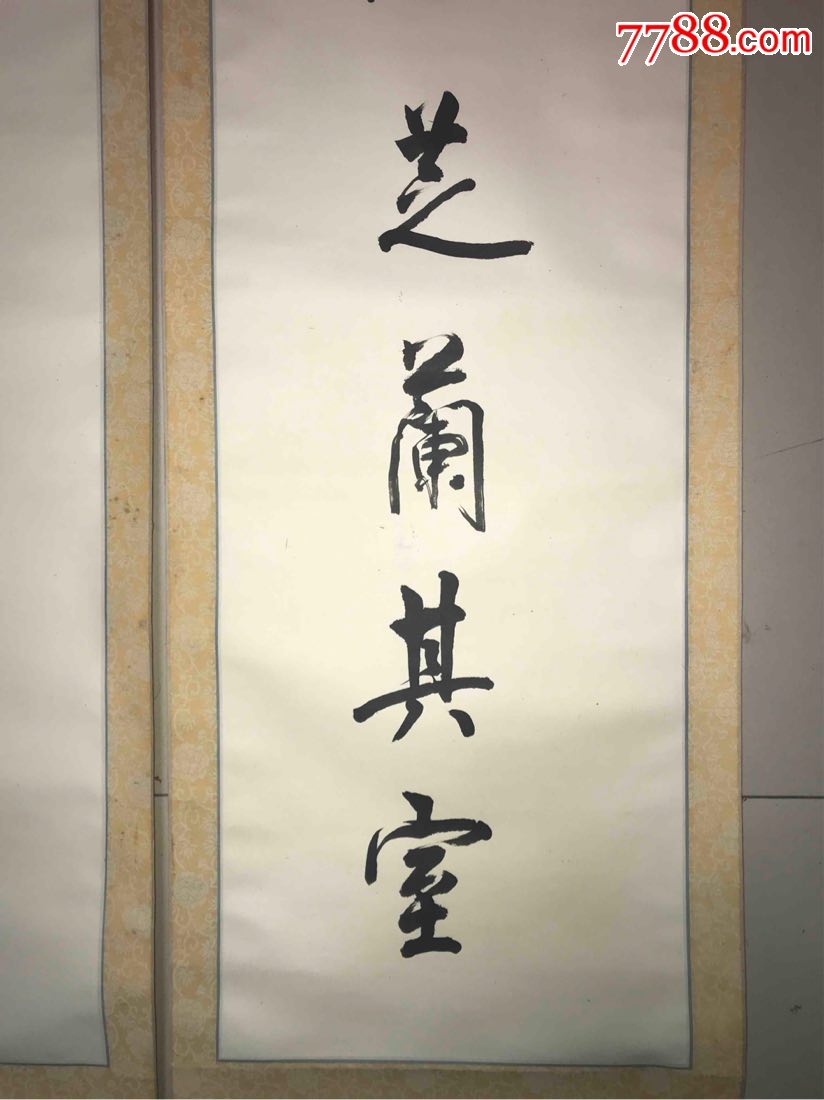 7788.com
芝蘭其室